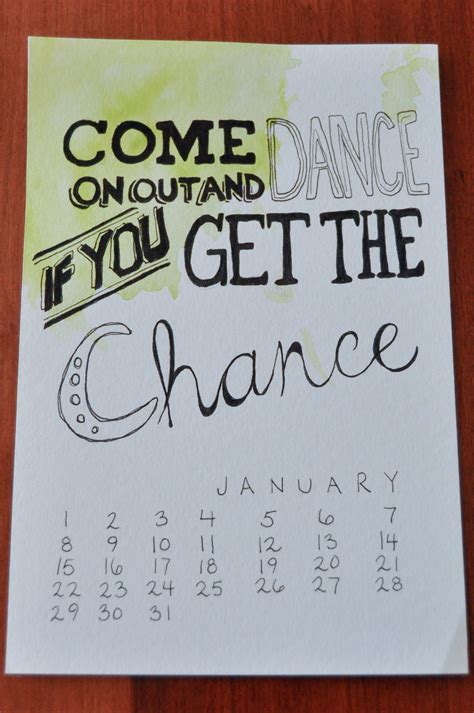 COME DANCE
ON OUT AND
IF YOU GET THE
Chance
JANUARY
1 2 3 4 5 6 7
8 9 10 11 12 13 14
15 16 17 18 19 20 21
22 23 24 25 26 27 28
29 30 31